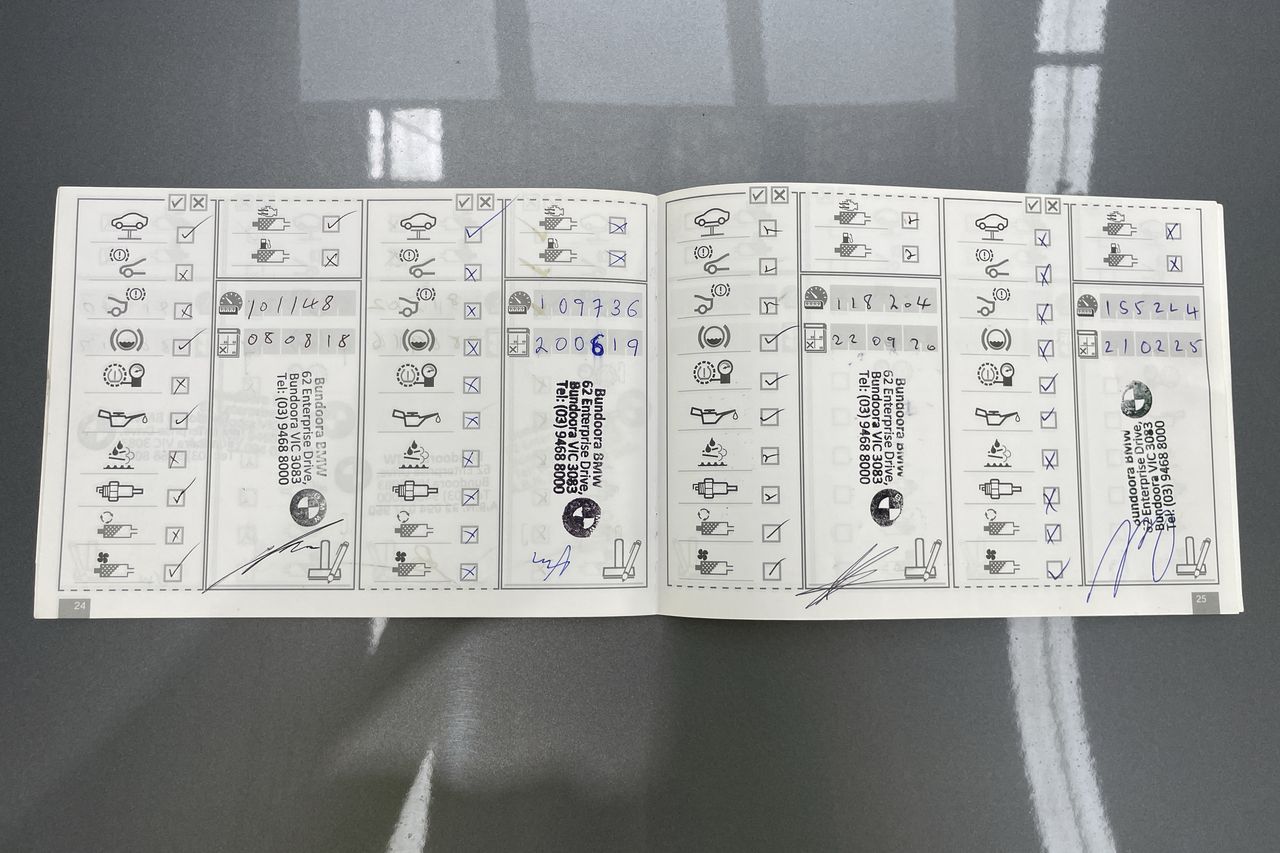 101148
080818
Bundoora BMW
62 Enterprise Drive,
Bundoora VIC 3083
Tel: (03) 9468 8000
24
109736
200619
Bundoora BMW
62 Enterprise Drive,
Bundoora VIC 3083
Tel: (03) 9468 8000
118204
220920
Bundoora BMW
62 Enterprise Drive,
Bundoora VIC 3083
Tel: (03) 9468 8000
155224
210225
Bundoora BMW
62 Enterprise Drive,
Bundoora VIC 3083
Tel: (03) 9468 8000
25